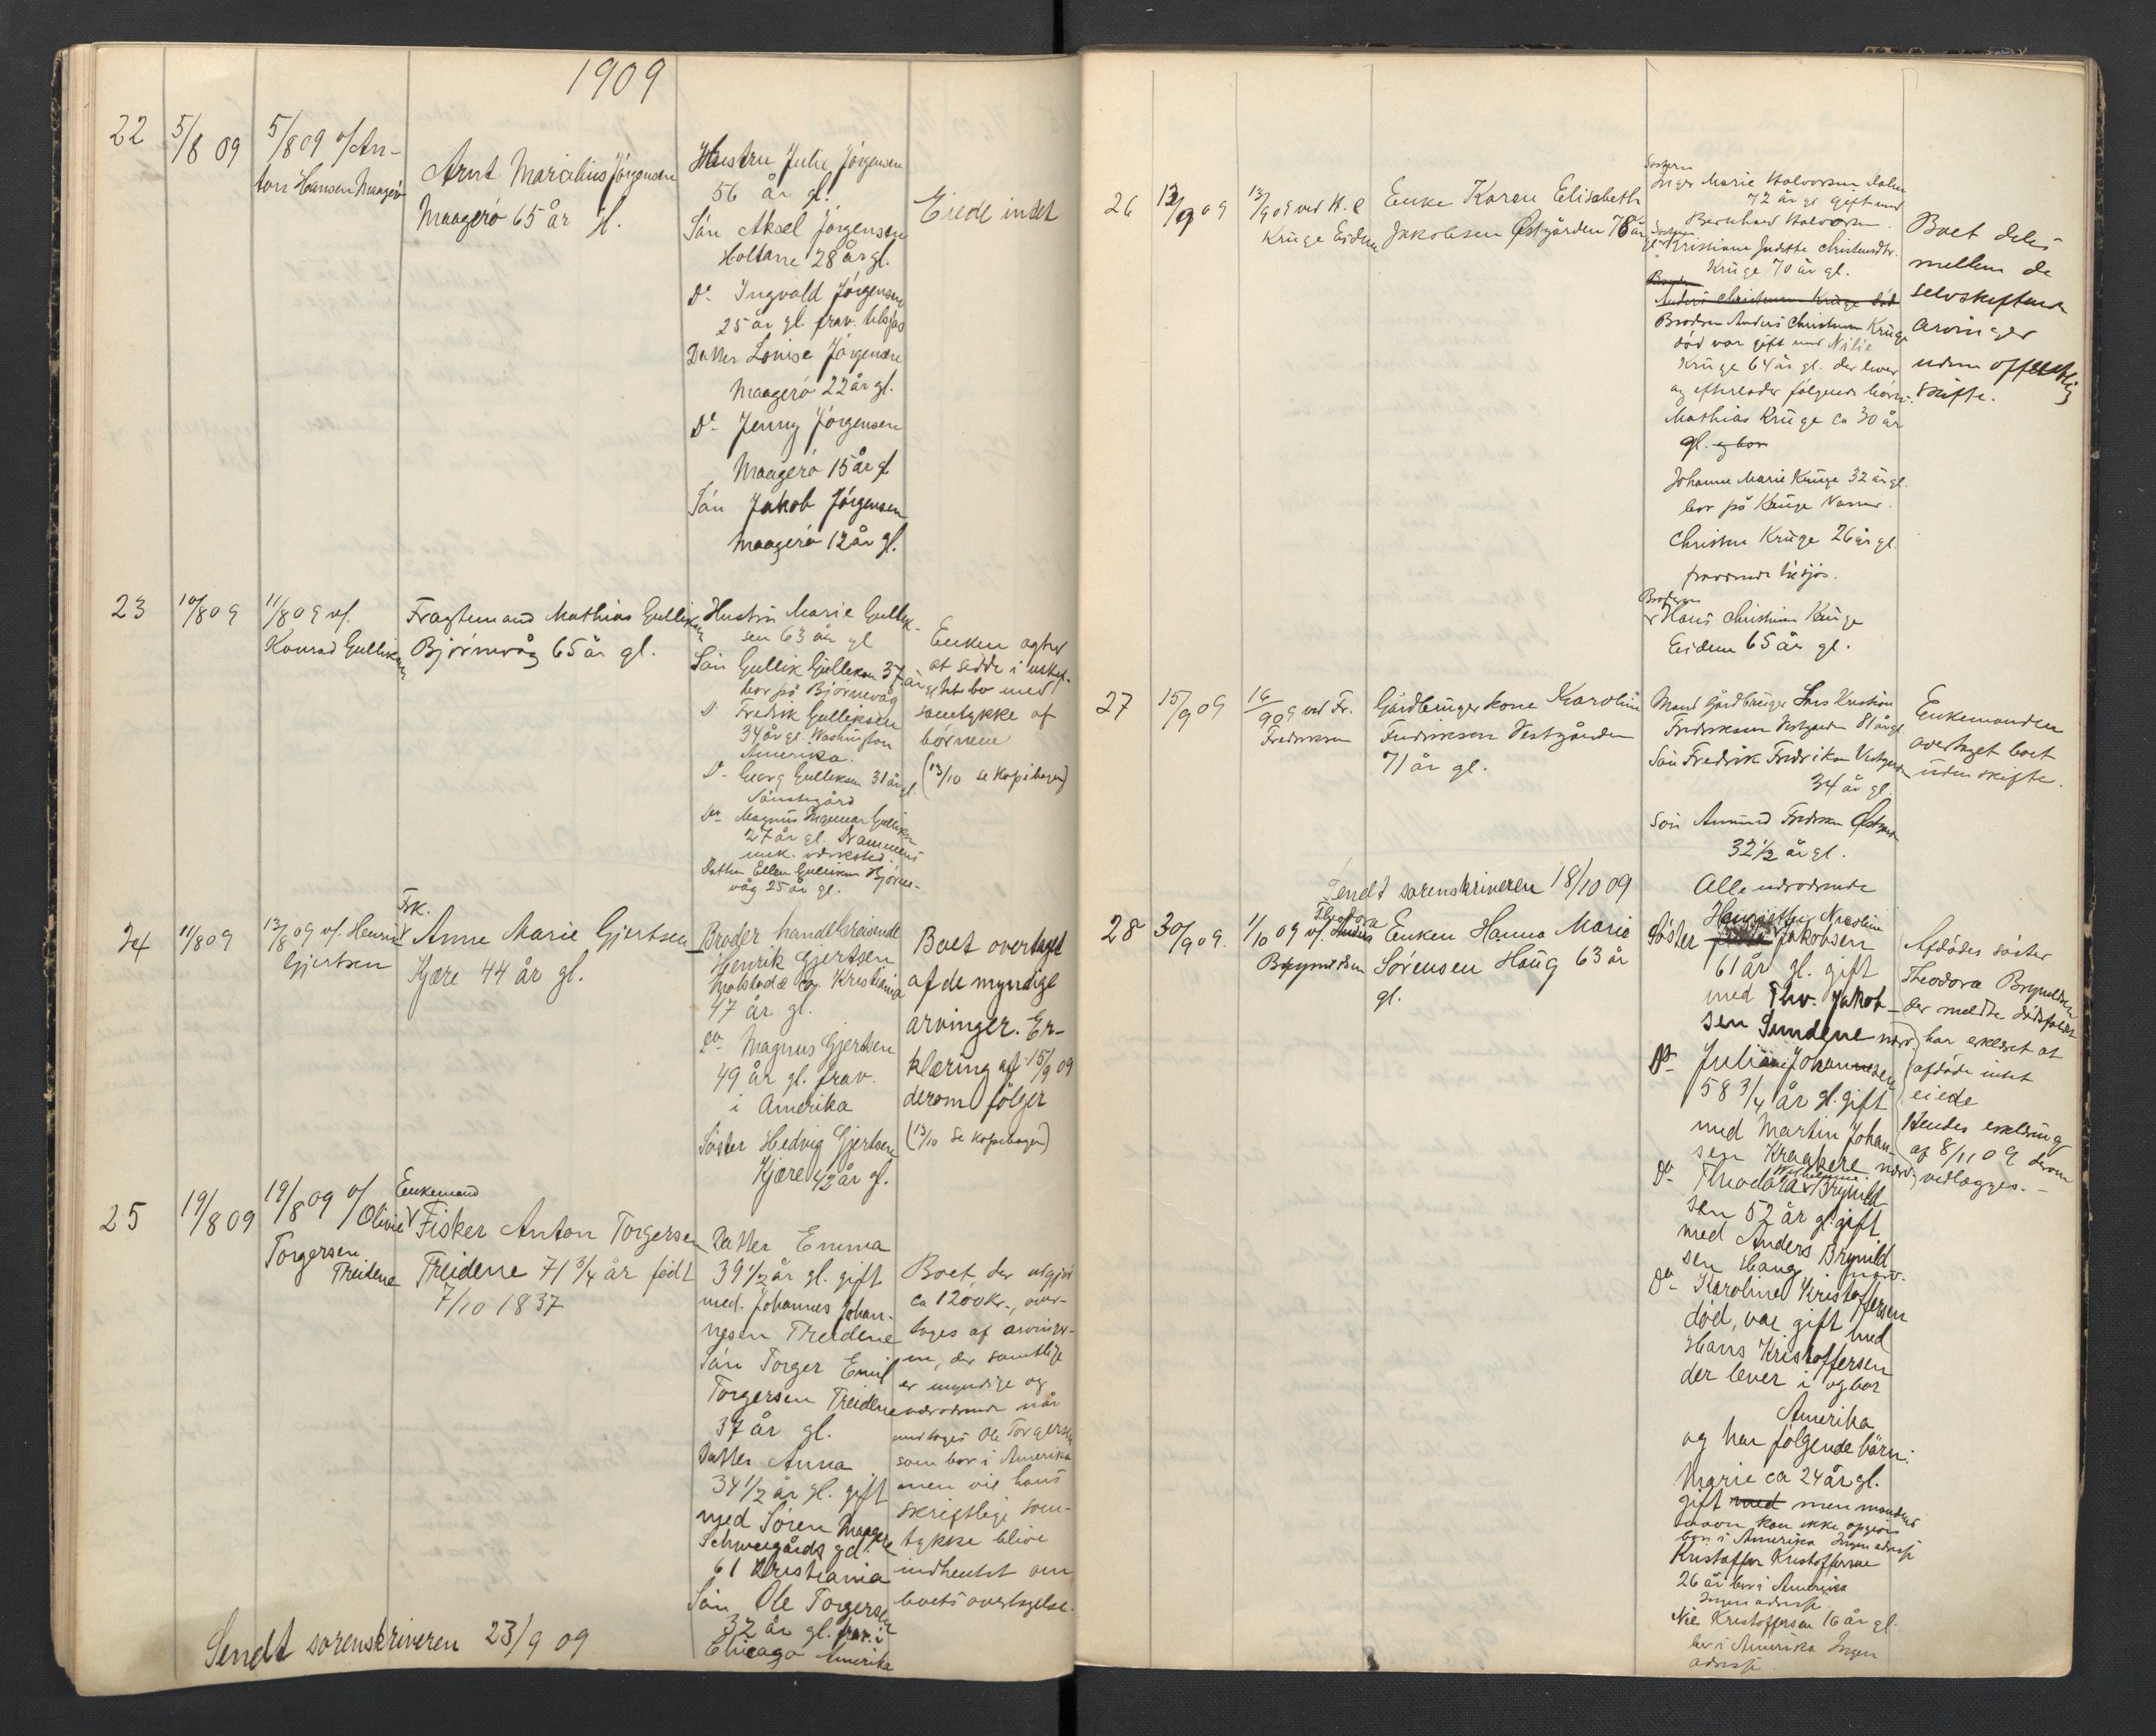 1909
22
5/8 09
5/8 09 v/ An-
ton Hansen Maagerö
Arnt Marcelius Jörgensen
Maagerö 65 år gl.
Hustru Julie Jörgensen
56 år gl.
Sön Aksel Jörgensen
Holtane 28 år gl.
Do Ingvald Jörgensen
25 år gl. frav. tilsjös
Datter Lovise Jörgensen
Maagerö 22 år gl.
Do Jenny Jörgensen
Maagerö 15 år gl
Sön Jakob Jörgensen
Maagerö 12 år gl.
Eiede indet
23
10/8 09
11/8 09 v/.
Konrad Gulliksen
Fragtemand Mathias Gulliksen
Björnevåg 65 år gl.
Hustru Marie Gullik-
sen 63 år gl
Sön Gullik Gulliksen 37 år gl
bor på Björnevåg
D. Fredrik Gulliksen
34 år gl. Washington
Amerika.
D. Georg Gulliksen 31 år gl.
Do Magnus Gulliksen
27 år gl. Drammens
mek. værksted.
Datter Ellen Gulliksen Björne-
våg 25 år gl.
Enken agter
at sidde i uskif-
tet bo med
samtykke af
börnene
(13/10 se kopibogen)
24
11/8 09
13/8 09 v/. Henrik
Gjertsen
Frk.
Anne Marie Gjertsen
Kjære 44 år gl.
Broder handelsreisende
Henrik Gjertsen
Kristiania
47 år gl.
Do Magnus Gjertsen
49 år gl. frav.
i Amerika
Söster Hedvig Gjertsen
Kjære 42 år gl.
Boet overtaget
af de myndige
arvinger. Er-
klæring af 15/9 09
derom fölger
(13/10 Se kopibogen)
25
19/8 09
19/8 09 v/
Olivie
Torgersen
Treidene
Enkemand
Fisker Anton Torgersen
Treidene 71 3/4 år födt
7/10 1837
Datter Emma
39 1/2 år gl. gift
med. Johannes Johan-
nesen Treidene
Sön Torger Emil
Torgersen Treidene
37 år gl.
Datter Anna
34 1/2 år gl. gift
med Sören Maagerö
Schweigårds gd.
61 Kristiania
Sön Ole Torgersen
32 år gl. frav. i
Chicago Amerika
Boet, der utgjör
ca 1200 kr., over-
tages af arvinger-
ne, der samtlige
er myndige og
nærværende når
undtages Ole Torgersen
som bor i Amerika
men vil hans
skriftlige sam-
tykke blive
indhentet om
boets overtagelse.
Sendt sorenskriveren 23/9 09
26
12/9 09
13/9 09 ved H. C
Krüge Eidene
Enke Karen Elisabeth
Jakobsen Østgården 78 år
gl.
Søsteren
Inger Marie Halvorsen Dalen
72 år gl gift med
Bernhard Halvorsen.
Søsteren
Kristiane Judithe Christensdtr.
Krüge 70 år gl.
Broder
Anders Christensen Krüge död
Broderen Anders Christensen Krüge
död var gift med Nilie
Krüge 64 år gl. der lever
og efterlader følgende børn:
Mathias Krüge ca 30 år
gl. og bor
Johanne Marie Krüge 32 år gl.
bor på Krüge
Christen Krüge 26 år gl.
fraværende tilsjøs.
Broderen
Hans Christian Krüge
Eidene 65 år gl.
Boet deles
mellem de
selvskiftende
arvinger
uden offentlig
skifte.
27
15/9 09
16/9 09 ved Fr.
Fredriksen
Gårdbruger kone Karoline
Fredriksen Vestgården
71 år gl.
Mand Gårdbruger Lars Kristian
Fredriksen Vestgården 81 år gl
Sön Fredrik Fredriksen Vestgården
34 år gl.
Sön Anund Fredriksen Østgården
32 1/2 år gl.
Alle nærværende
Enkemanden
overtaget boet
uden skifte.
Sendt sorenskriveren 18/10 09
28
30/9 09.
1/10 09 v/. Theodora
Brynildsen
Enken Hanna Marie
Sörensen Haug 63 år
gl.
Henriette Nicoline
Söster Jakobsen
61 år gl. gift
med Thv. Jakob-
sen Sundene nærv.
Do Juliane Johannesen
58 3/4 år gl. gift
med Martin Johan-
sen Kraakere nærv.
Do Theodora Wilhelmine Brynild-
sen 52 år gl. gift
med Anders Brynild-
sen Haug nærv.
Do Karoline Kristoffersen
död, var gift med
Hans Kristoffersen
der lever i og bor
Amerika
og har fölgende börn:
Marie ca 24 år gl.
gift med men mandens
navn kan ikke opgives
bor i Amerika Ingen adresse
Kristoffer Kristoffersen
26 år bor i Amerika
Ingen adresse.
Nils Kristoffersen 16 år gl.
bor i Amerika Ingen
adresse.
Afdödes söster
Theodora Brynildsen
der meldte dödsfaldet
har erklæret at
afdöde intet
eiede
Hendes erklæring
af 8/11 09 derom
vedlægges.